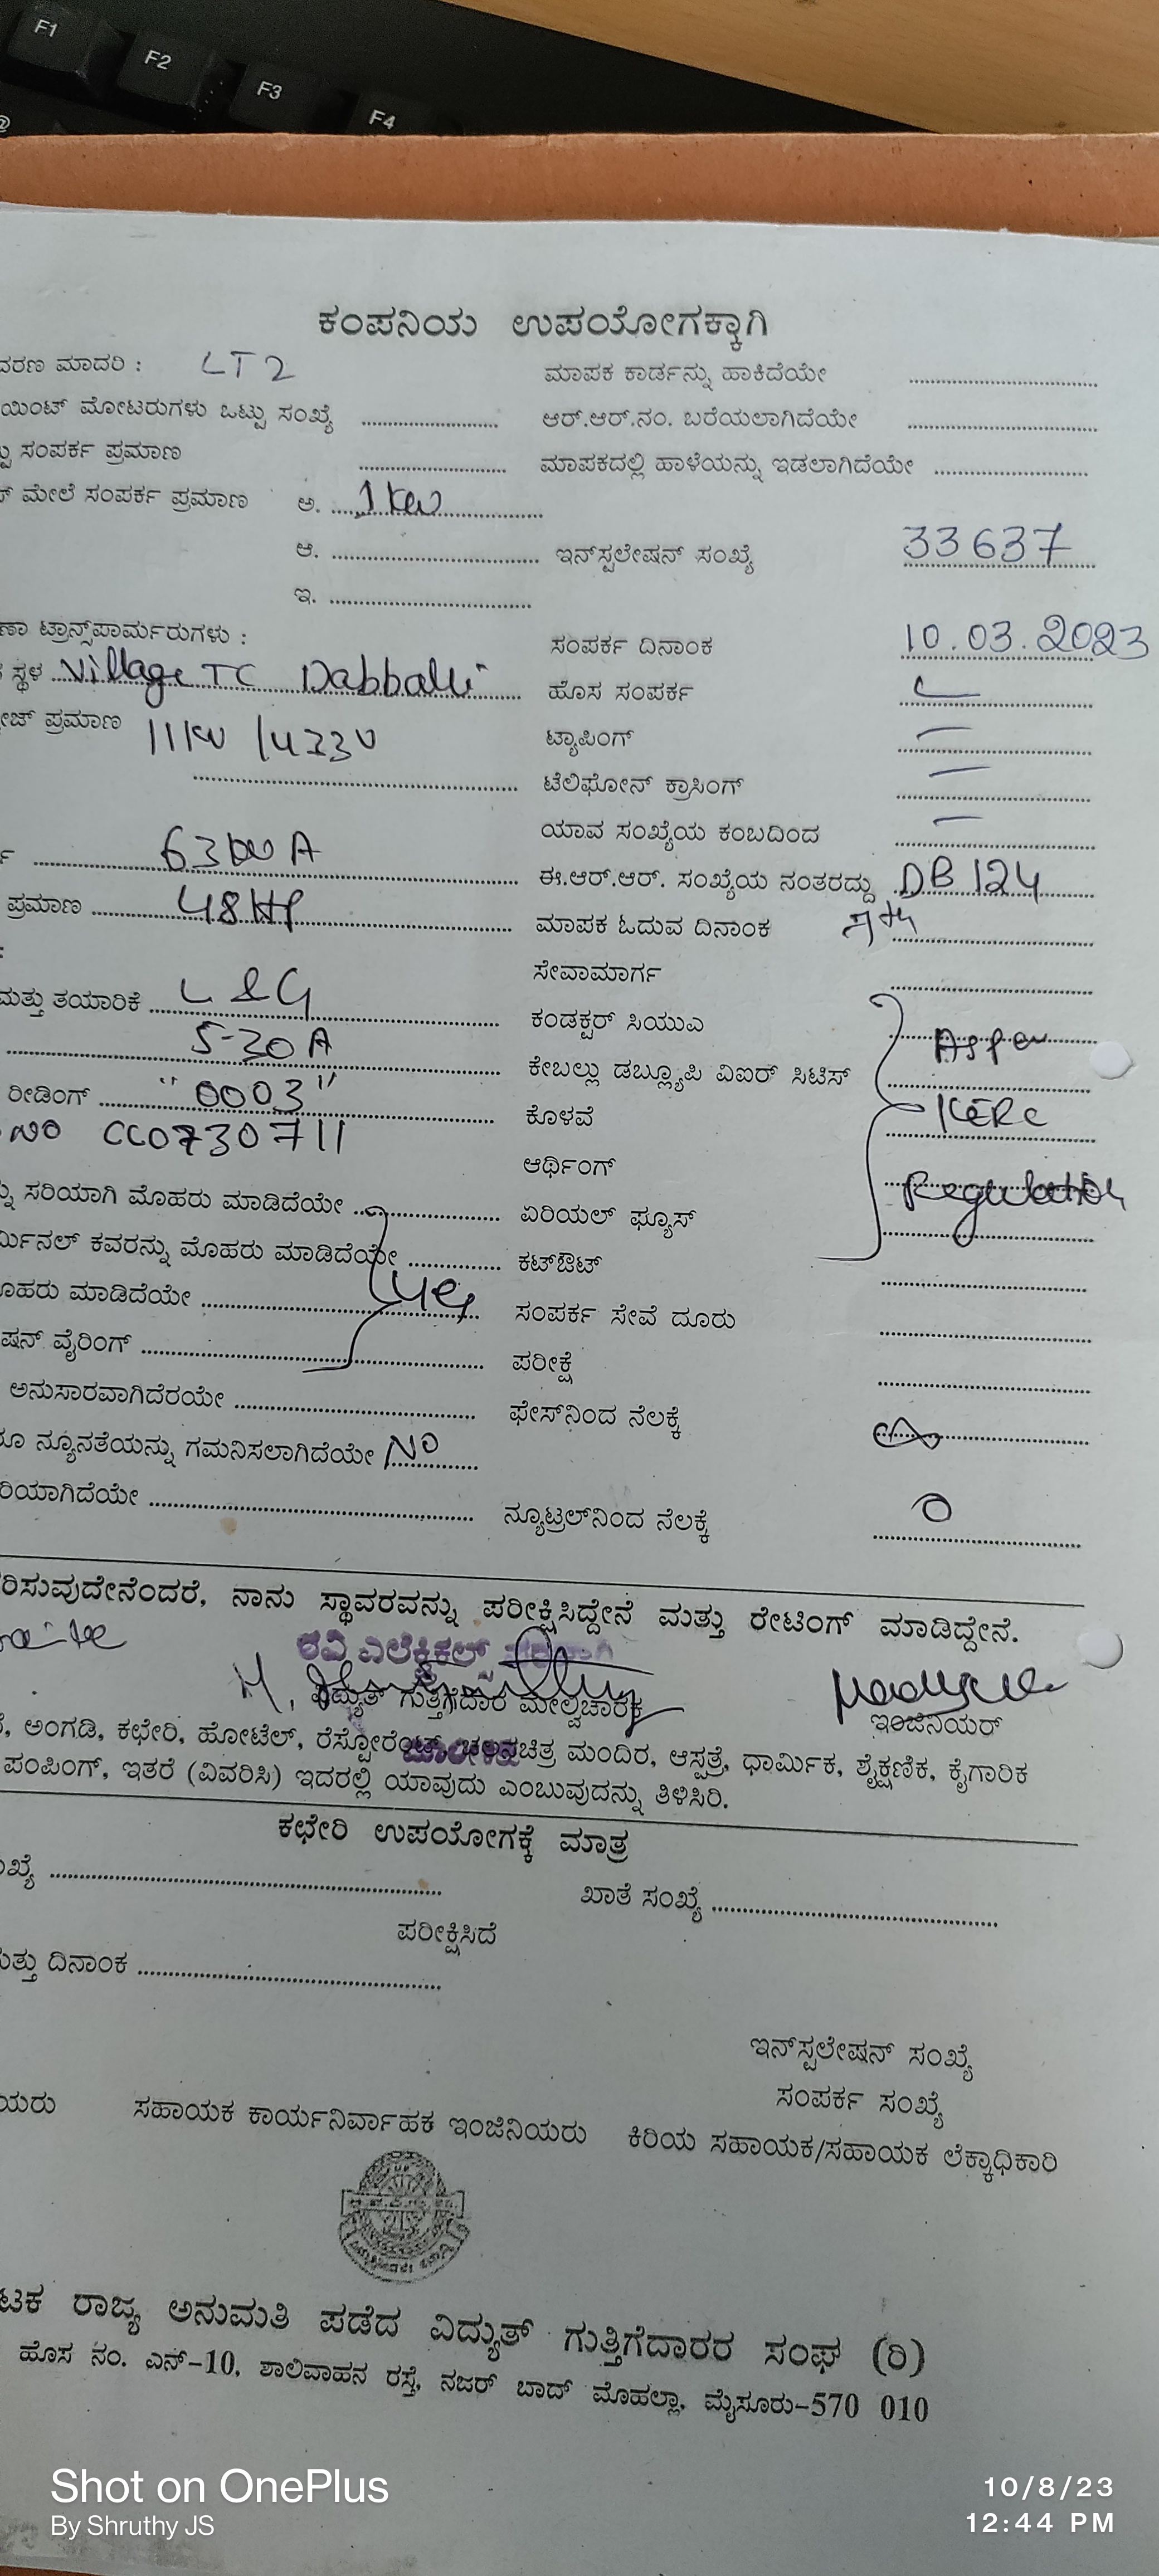 F1
F2
F3
F4
@
ಕಂಪನಿಯ ಉಪಯೋಗಕ್ಕಾಗಿ
ವರಣ ಮಾದರಿ : LT 2
ಮಾಪಕ ಕಾರ್ಡನ್ನು ಹಾಕಿದೆಯೇ
ಯಿಂಟ್ ಮೋಟರುಗಳು ಒಟ್ಟು ಸಂಖ್ಯೆ
ಆರ್.ಆರ್.ನಂ. ಬರೆಯಲಾಗಿದೆಯೇ
ಸಂಪರ್ಕ ಪ್ರಮಾಣ
ಮಾಪಕದಲ್ಲಿ ಹಾಳೆಯನ್ನು ಇಡಲಾಗಿದೆಯೇ
ಮೇಲೆ ಸಂಪರ್ಕ ಪ್ರಮಾಣ ಅ. 1 kw
ಆ.
ಇನ್‌ಸ್ಟಲೇಷನ್ ಸಂಖ್ಯೆ 33637
ಇ.
ಣಾ ಟ್ರಾನ್ಸ್‌ಪಾರ್ಮರುಗಳು :
ಸಂಪರ್ಕ ದಿನಾಂಕ 10.03.2023
ಸ್ಥಳ Village TC Dabballi
ಹೊಸ ಸಂಪರ್ಕ
ಪ್ರಮಾಣ 11KV /433V
ಟ್ಯಾಪಿಂಗ್ –
ಟೆಲಿಫೋನ್ ಕ್ರಾಸಿಂಗ್ –
ಯಾವ ಸಂಖ್ಯೆಯ ಕಂಬದಿಂದ –
63 KVA
ಈ.ಆರ್.ಆರ್. ಸಂಖ್ಯೆಯ ನಂತರದ್ದು DB 124
ಪ್ರಮಾಣ 48 HP
ಮಾಪಕ ಓದುವ ದಿನಾಂಕ 7th
ಸೇವಾಮಾರ್ಗ
ಮತ್ತು ತಯಾರಿಕೆ L & G
ಕಂಡಕ್ಟರ್ ಸಿಯುಎ
5-30 A
As per
ಕೇಬಲ್ಲು ಡಬ್ಲ್ಯೂಪಿ ವಿಐರ್ ಸಿಟಿಸ್
ರೀಡಿಂಗ್ "0003"
ಕೊಳವೆ
KERC
NO CC0730711
ಆರ್ಥಿಂಗ್
Regulation
ಸರಿಯಾಗಿ ಮೊಹರು ಮಾಡಿದೆಯೇ
ಏರಿಯಲ್ ಫ್ಯೂಸ್
ರ್ಮಿನಲ್ ಕವರನ್ನು ಮೊಹರು ಮಾಡಿದೆಯೇ
ಕಟ್‌ಔಟ್
ಮಾಡಿದೆಯೇ
ಸಂಪರ್ಕ ಸೇವೆ ದೂರು
ಷನ್ ವೈರಿಂಗ್
ಪರೀಕ್ಷೆ
ಅನುಸಾರವಾಗಿದೆರಯೇ
ಫೇಸ್‌ನಿಂದ ನೆಲಕ್ಕೆ ∞
ನ್ಯೂನತೆಯನ್ನು ಗಮನಿಸಲಾಗಿದೆಯೇ NO
ರಿಯಾಗಿದೆಯೇ
ನ್ಯೂಟ್ರಲ್‌ನಿಂದ ನೆಲಕ್ಕೆ 0
ರಿಸುವುದೇನೆಂದರೆ, ನಾನು ಸ್ಥಾವರವನ್ನು ಪರೀಕ್ಷಿಸಿದ್ದೇನೆ ಮತ್ತು ರೇಟಿಂಗ್ ಮಾಡಿದ್ದೇನೆ.
ರವಿ ಎಲೆಕ್ಟ್ರಿಕಲ್ಸ್
ವಿದ್ಯುತ್ ಗುತ್ತಿಗೆದಾರ ಮೇಲ್ವಿಚಾರಕ
ಇಂಜಿನಿಯರ್
ಅಂಗಡಿ, ಕಛೇರಿ, ಹೋಟೆಲ್, ರೆಸ್ಟೋರೆಂಟ್, ಚಲನಚಿತ್ರ ಮಂದಿರ, ಆಸ್ಪತ್ರೆ, ಧಾರ್ಮಿಕ, ಶೈಕ್ಷಣಿಕ, ಕೈಗಾರಿಕ
ಪಂಪಿಂಗ್, ಇತರೆ (ವಿವರಿಸಿ) ಇದರಲ್ಲಿ ಯಾವುದು ಎಂಬುವುದನ್ನು ತಿಳಿಸಿರಿ.
ಕಛೇರಿ ಉಪಯೋಗಕ್ಕೆ ಮಾತ್ರ
ಖ್ಯೆ
ಖಾತೆ ಸಂಖ್ಯೆ
ಪರೀಕ್ಷಿಸಿದೆ
ಮತ್ತು ದಿನಾಂಕ
ಇನ್‌ಸ್ಟಲೇಷನ್ ಸಂಖ್ಯೆ
ಸಂಪರ್ಕ ಸಂಖ್ಯೆ
ಯರು ಸಹಾಯಕ ಕಾರ್ಯನಿರ್ವಾಹಕ ಇಂಜಿನಿಯರು ಕಿರಿಯ ಸಹಾಯಕ/ಸಹಾಯಕ ಲೆಕ್ಕಾಧಿಕಾರಿ
ಟಕ ರಾಜ್ಯ ಅನುಮತಿ ಪಡೆದ ವಿದ್ಯುತ್ ಗುತ್ತಿಗೆದಾರರ ಸಂಘ (ರಿ)
ಹೊಸ ನಂ. ಎನ್-10, ಶಾಲಿವಾಹನ ರಸ್ತೆ, ನಜರ್ ಬಾದ್ ಮೊಹಲ್ಲಾ, ಮೈಸೂರು-570 010
Shot on OnePlus
By Shruthy JS
10/8/23
12:44 PM